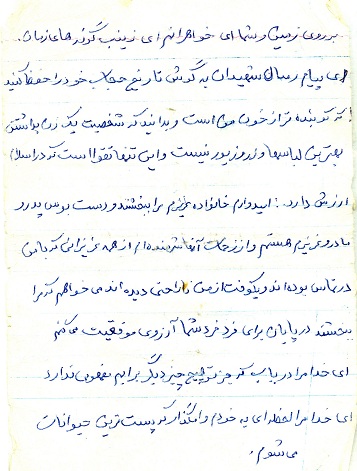 بر روی زمین و شما ای خواهرانم ای زینب گونه های زمان
ای پیام رسان شهیدان به گوش تاریخ حجاب خود را حفظ کنید
که کوبنده تر از خون من است و بدانید که شخصیت یک زن به داشتن
بهترین لباسها و زر و زیور نیست و این تنها تقوا است که در اسلام
ارزش دارد. امیدوارم خانواده عزیزم مرا ببخشند و دست بوس پدر و
مادر عزیزم هستم و از زحمات آنها شرمنده ام از همه عزیزانی که با من
در تماس بوده اند و یکوقت از من ناراحتی دیده اند می خواهم که مرا
ببخشند در پایان برای فرد فرد شما آرزوی موفقیت می کنم
ای خدا مرا دریاب که جز تو هیچ چیز دیگر برایم مفهومی ندارد
ای خدا مرا لحظه ای به خودم وامگذار که پست ترین حیوانات
می شوم.